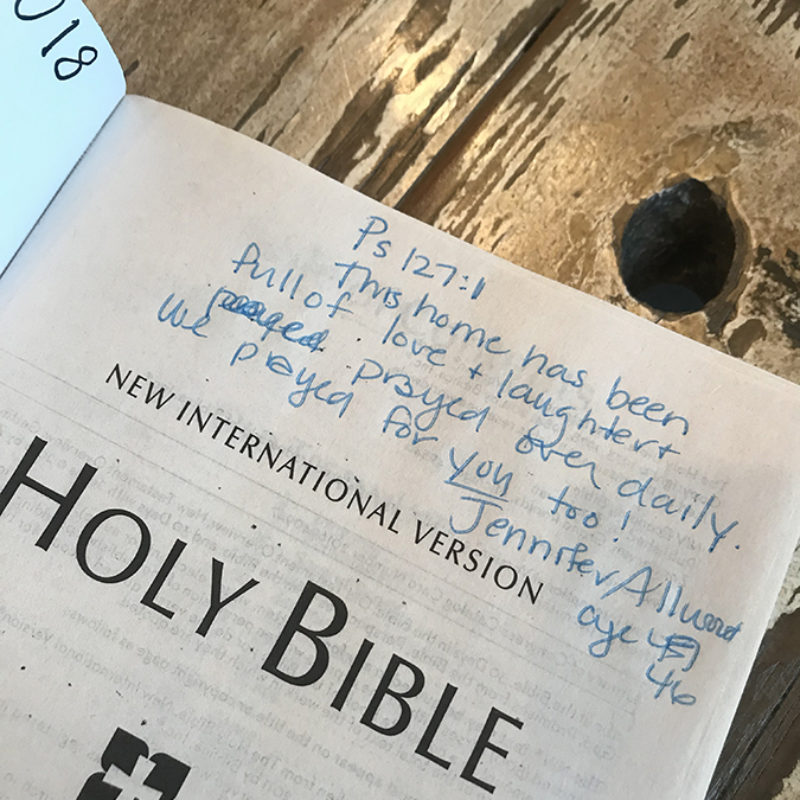 018
Ps 127:1
This home has been
full of love + laughter +
prayed over daily.
We prayed for you too!
Jennifer
age
46
NEW INTERNATIONAL VERSION
HOLY BIBLE